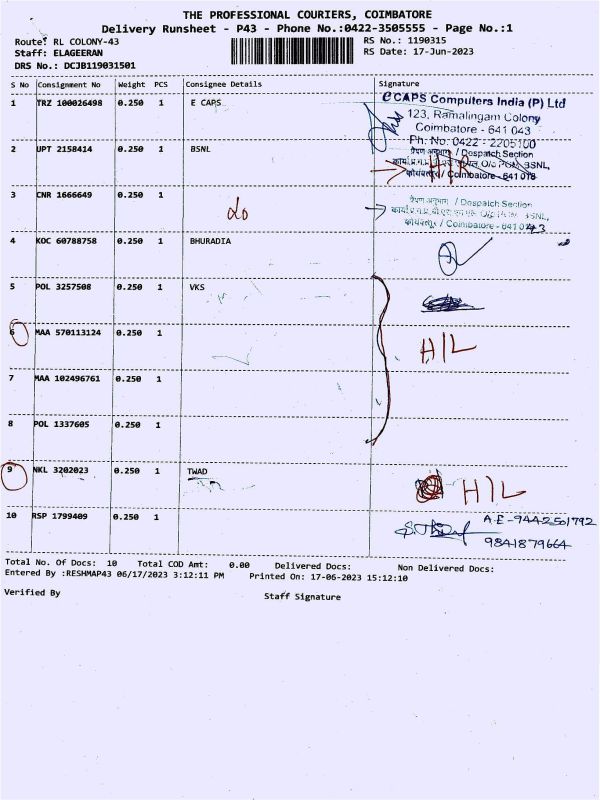 THE PROFESSIONAL COURIERS, COIMBATORE
Delivery Runsheet - P43 - Phone No.:0422-3505555 - Page No.:1
Route: RL COLONY-43
RS No.: 1190315
Staff: ELAGEERAN
RS Date: 17-Jun-2023
DRS No.: DCJB119031501
S No Consignment No Weight PCS Consignee Details Signature
1 TRZ 100026498 0.250 1 E CAPS
e CAPS Computers India (P) Ltd
123, Ramalingam Colony
Coimbatore - 641 043
Ph: No: 0422 - 2205100
2 UPT 2158414 0.250 1 BSNL
प्रेषण अनुभाग / Despatch Section
BSNL,
कोयंबत्तूर / Coimbatore - 641 018
3 CNR 1666649 0.250 1 do
प्रेषण अनुभाग / Despatch Section
BSNL,
कोयंबत्तूर / Coimbatore - 641 043
4 KOC 60788758 0.250 1 BHURADIA
5 POL 3257508 0.250 1 VKS
6 MAA 570113124 0.250 1 H/L
7 MAA 102496761 0.250 1
8 POL 1337605 0.250 1
9 NKL 3202023 0.250 1 TWAD H/L
10 RSP 1799409 0.250 1 A.E-9442501792
9841879664
Total No. Of Docs: 10 Total COD Amt: 0.00 Delivered Docs: Non Delivered Docs:
Entered By :RESHMAP43 06/17/2023 3:12:11 PM Printed On: 17-06-2023 15:12:10
Verified By Staff Signature